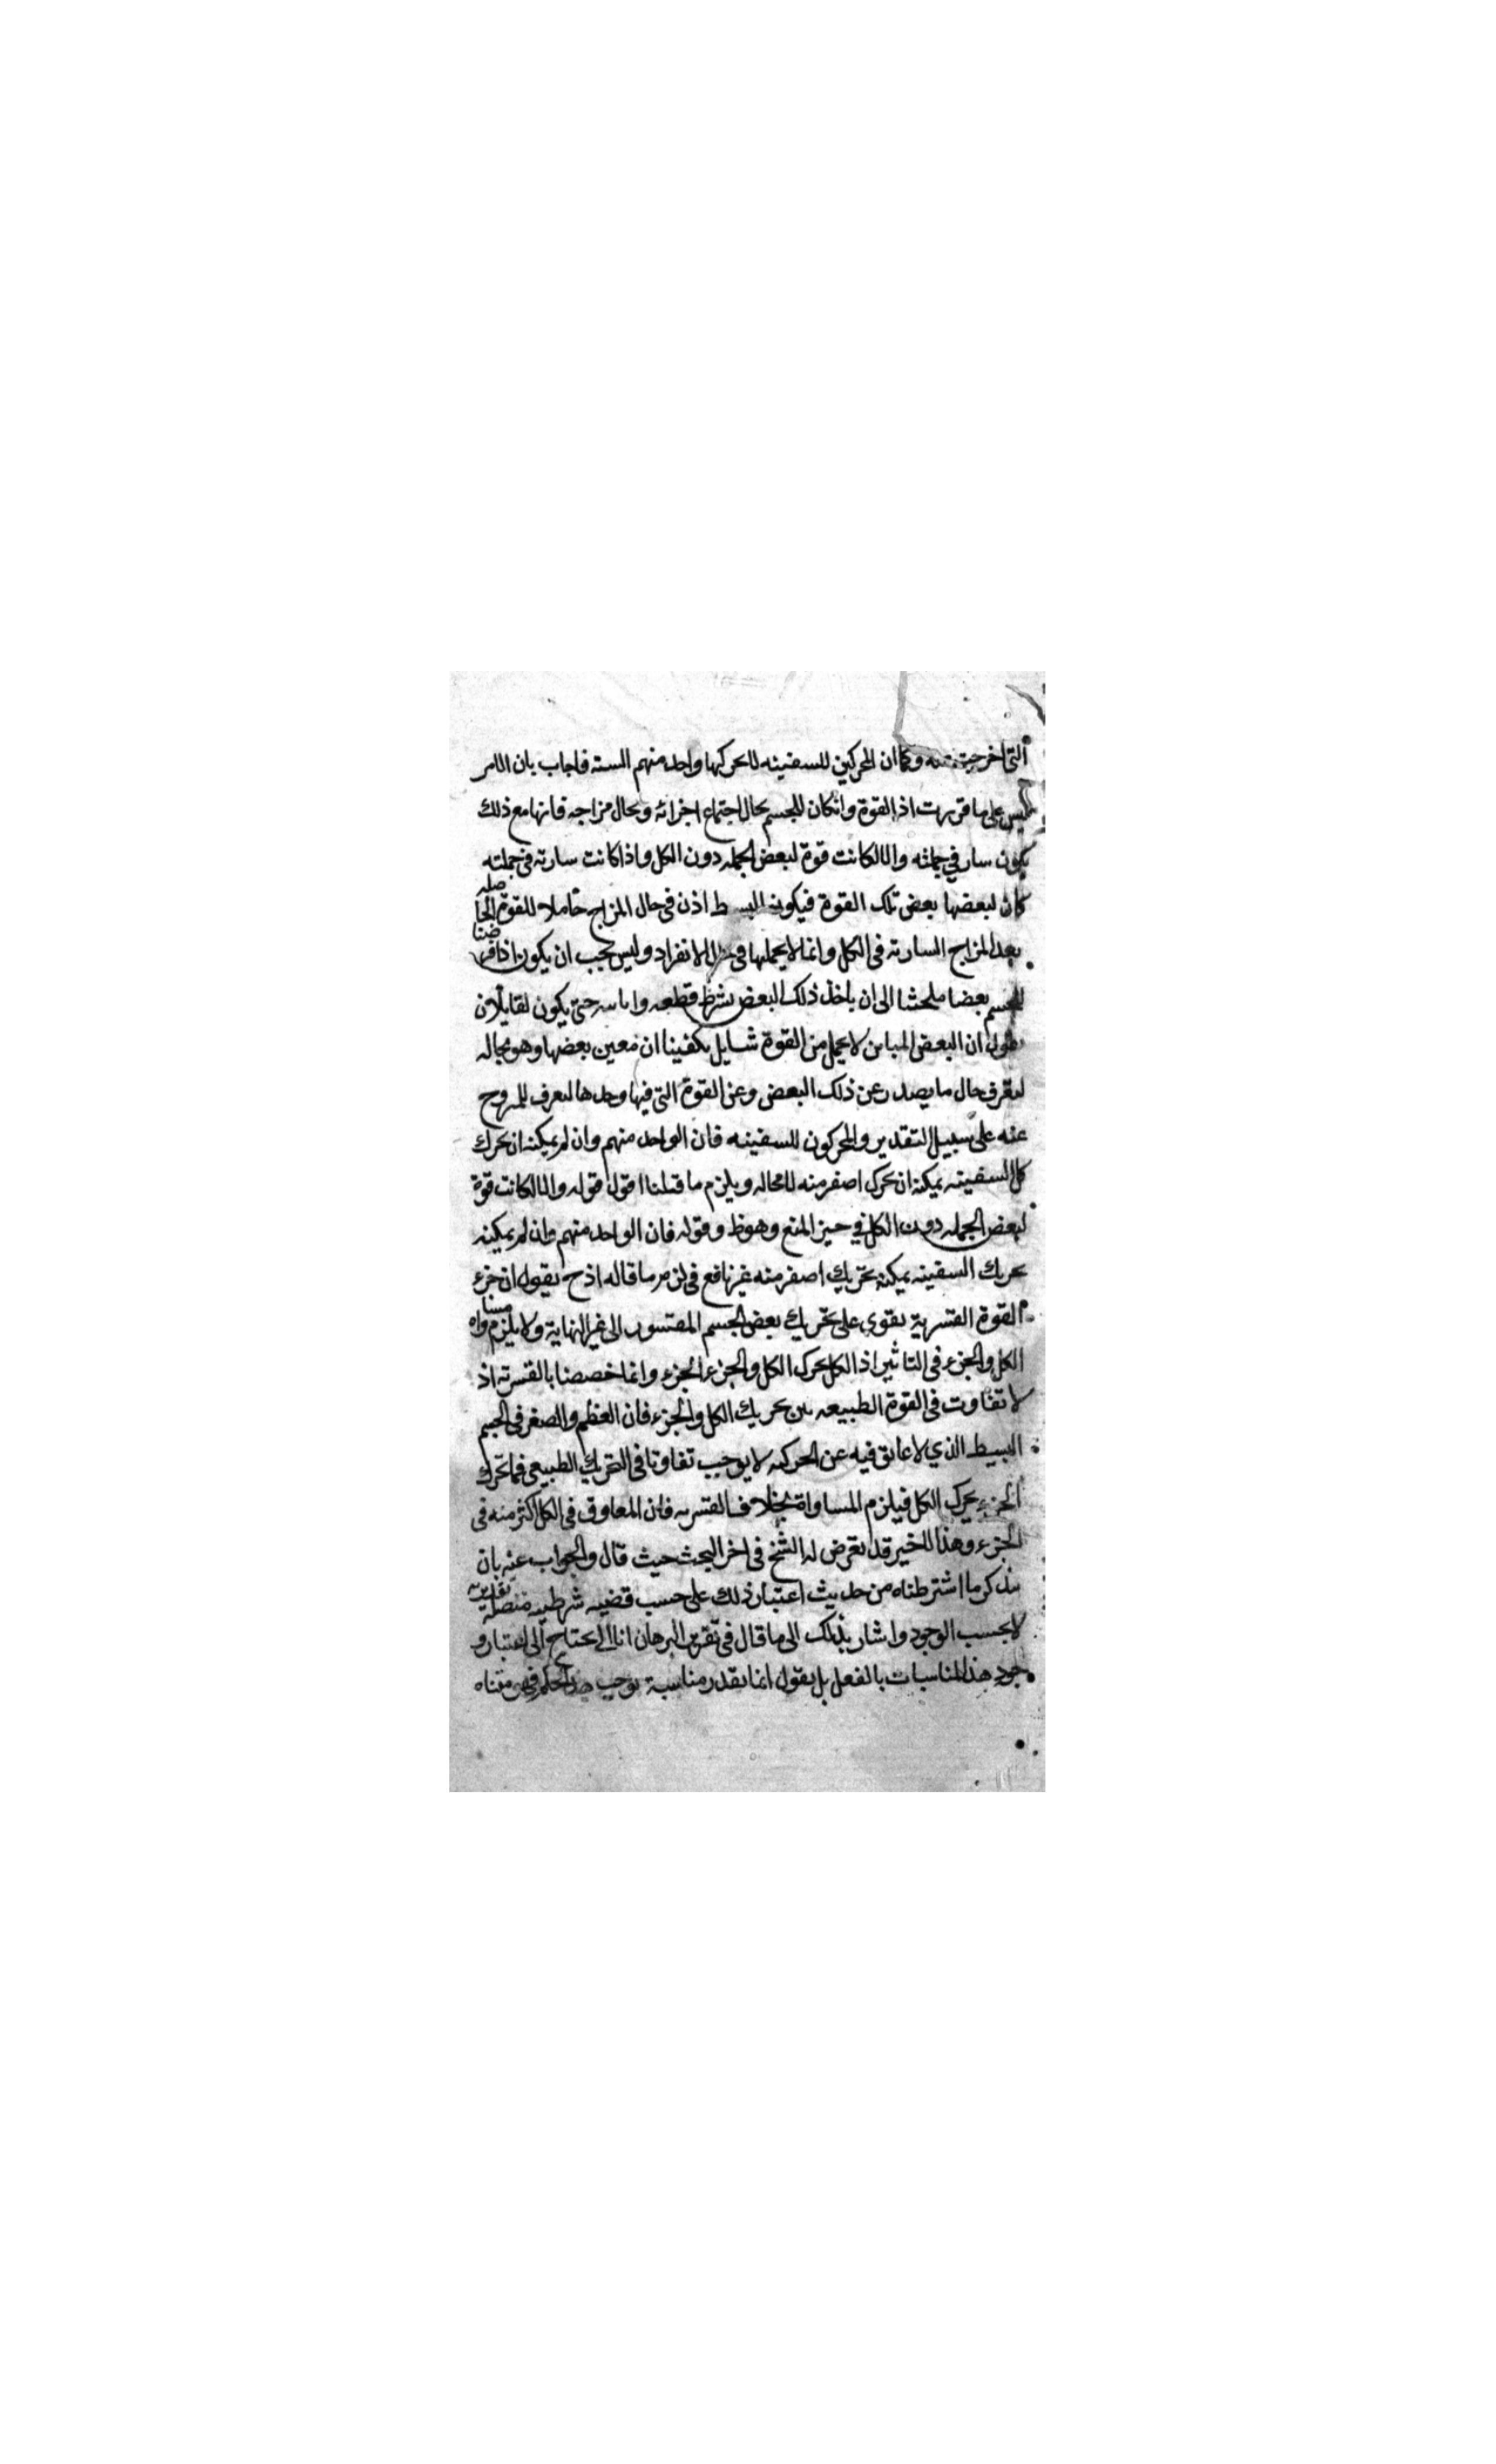 التى اخرجت منه وكما ان المحركين للسفينه لا يحركها واحد منهم السته فاجاب بان الامر
ليس على ما قررت اذ القوة وان كان للجسم بحال اجتماع اجزائه وبحال مزاجه فانها مع ذلك
يكون سار في جملته والا لكانت قوة لبعض الجمله دون الكل واذا كانت سارته في جملته
كان لبعضها بعض تلك القوة فيكون البسيط اذن في حال المزاج حاملا للقوة الحاصله
بعد المزاج السارته في الكل وانما لا يحملها في حال الانفراد وليس يجب ان يكون اذا فرضنا
للجسم بعضا ملحشا الى ان ياخذ ذلك البعض بشرط قطعه وابانته حتى يكون لقايل ان
يقول ان البعض المباين لا يحمل من القوة شيا بل يكفينا ان نعين بعضها وهو بحاله
لتعرف حال ما يصدر عن ذلك البعض وعن القوة التى فيها وحدها
عنه على سبيل التقدير والمحركون للسفينه فان الواحد منهم وان لم يمكنه ان يحرك
كل السفينه يمكنه ان يحرك اصغر منه لا محاله ويلزم ما قلنا اقول قوله والا لكانت قوة
لبعض الجمله دون الكل في حيز المنع وهو ظ وقوله فان الواحد منهم وان لم يمكنه
تحريك السفينه يمكنه تحريك اصغر منه غير نافع في لزوم ما قاله اذ ح يقول ان جزء
القوة القسرية يقوى على تحريك بعض الجسم المقسور الى غير النهاية ولا يلزم مساواه
الكل والجزء في التاثير اذ الكل يحرك الكل والجزء الجزء وانما خصصنا بالقسرته اذ
لا تفاوت في القوة الطبيعه بين تحريك الكل والجزء فان العظم والصغر في الجسم
البسيط الذي لا عايق فيه عن الحركه لا يوجب تفاوتا في التحريك الطبيعى فما يحرك
الجزء يحرك الكل فيلزم المساواة بخلاف القسريه فان المعاوق في الكل اكثر منه في
الجزء وهذا الاخير قد تعرض له الشيخ في اخر البحث حيث قال والجواب عنه بان
يتذكر ما اشترطناه من حديث اعتبار ذلك على حسب قضيه شرطيه متصله تقديريه
لا بحسب الوجود واشار بذلك الى ما قال في تقرير البرهان انا لا يحتاج الى اعتبار و
جود هذا المناسبات بالفعل بل يقول انما يقدر مناسبة يوجب هذا الحكم متناه